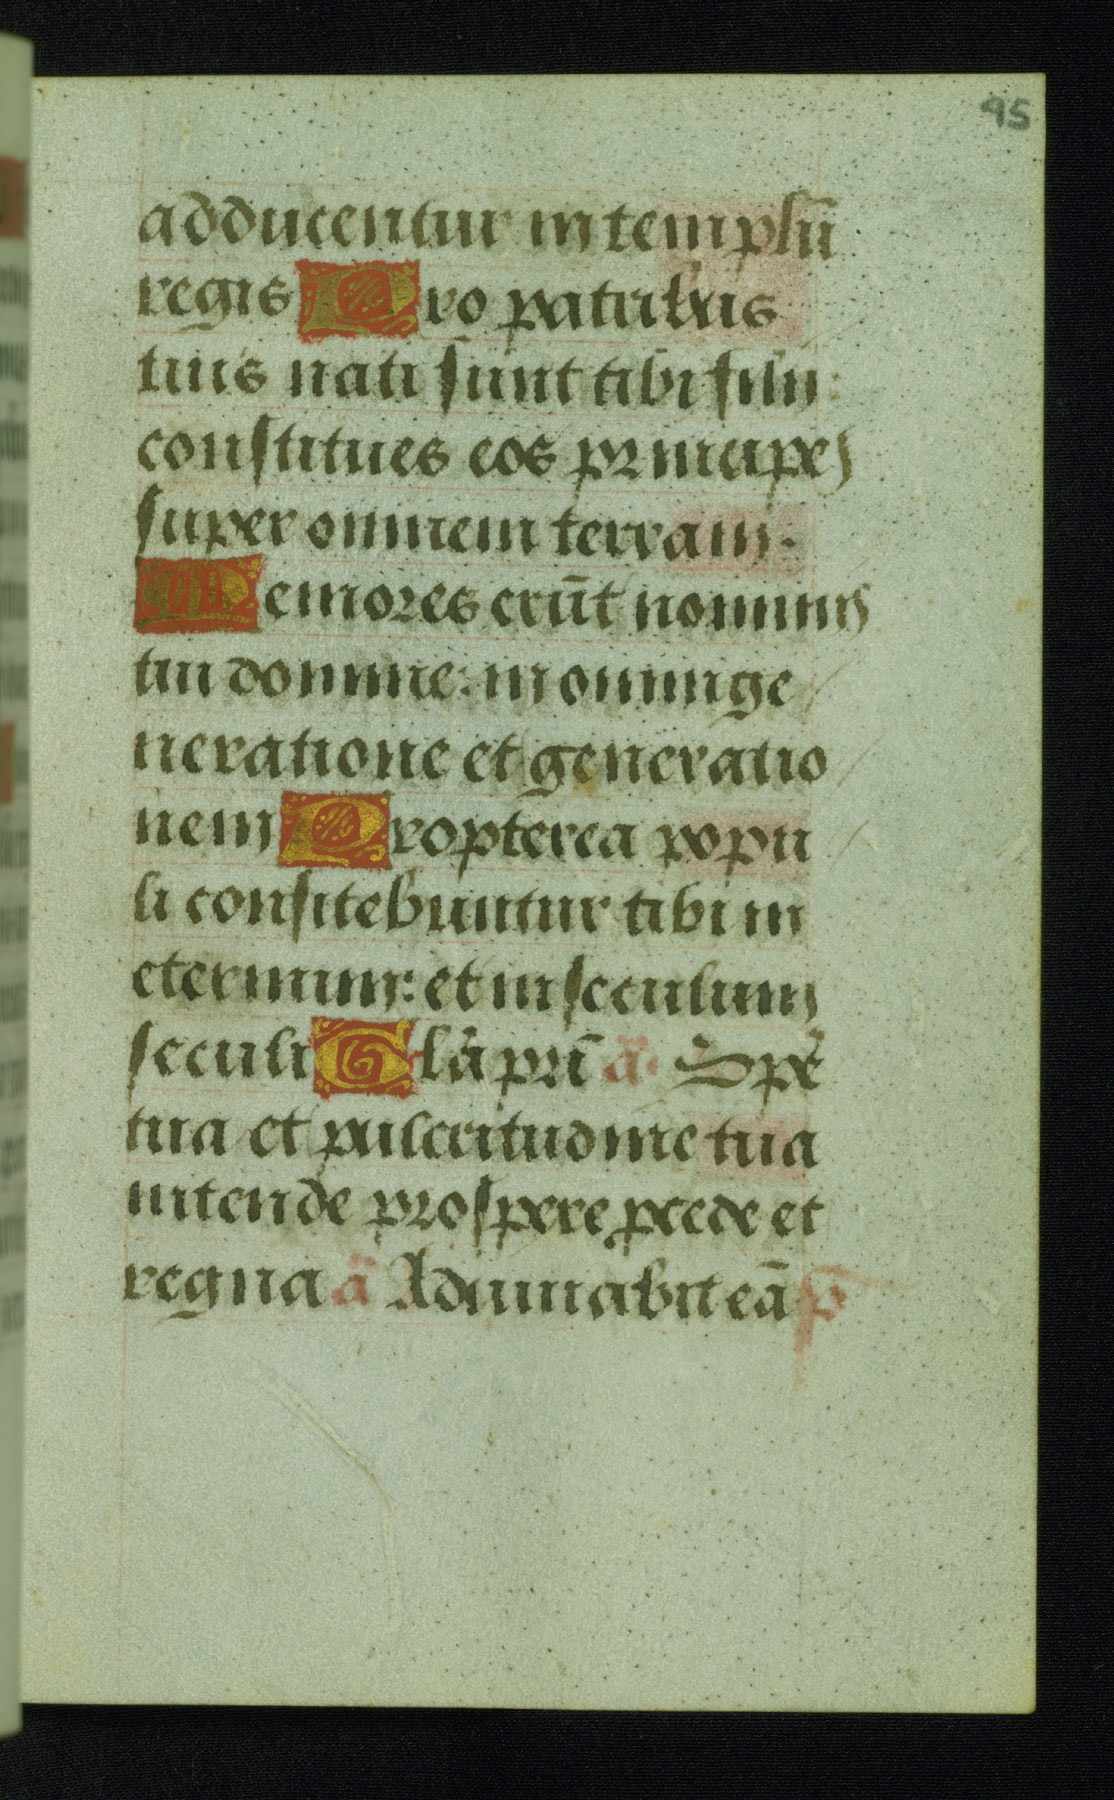 95
adducentur in templū
regis Pro patribus
tuis nati sunt tibi filii:
constitues eos principes
super omnem terram.
Memores erūt nominis
tui domine: in omni ge
neratione et generatio
nem Propterea popu
li confitebuntur tibi in
eternum: et in seculum
seculi Glā pri ā. Spē
tua et pulcritudine tua
intende prospere ꝓcede et
regna ā Adiuuabit eā p̄